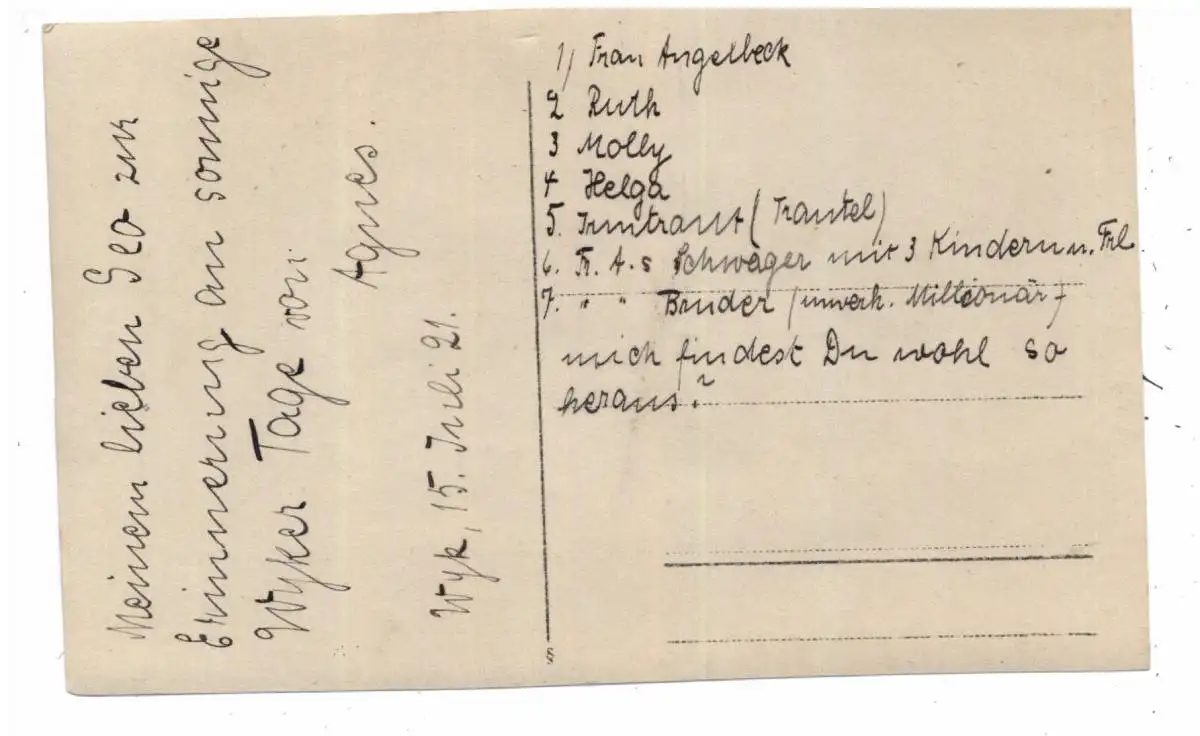 Meinem lieben Geo zur
Erinnerung an sonnige
Wyker Tage von
Agnes.
Wyk, 15. Juli 21.
1) Frau Angelbeck
2 Ruth
3 Molly
4 Helga
5. Irmtraut (Trautel)
6. Fr. A.s Schwager mit 3 Kindern u. Frl.
7. " " Bruder (unverh. Millionär)
mich findest Du wohl so
heraus?